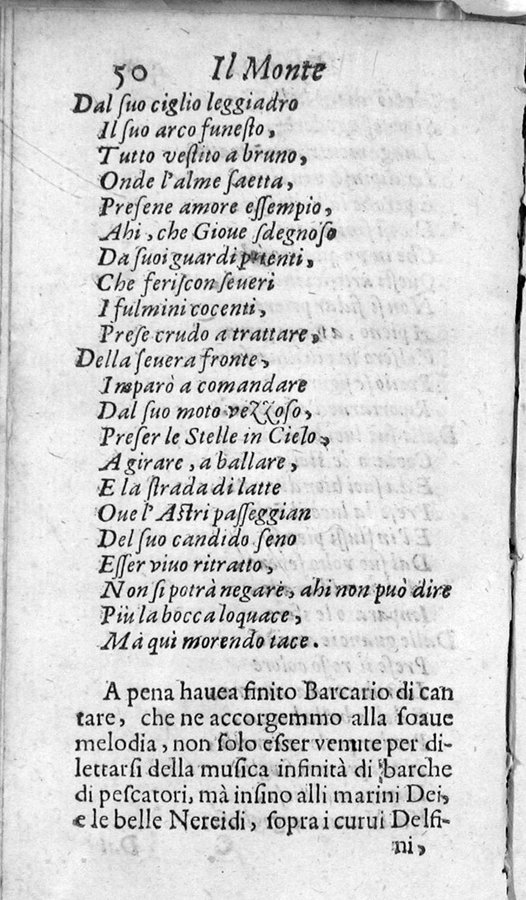 50 Il Monte
Dal ſuo ciglio leggiadro
Il ſuo arco funeſto,
Tutto veſtito a bruno,
Onde l'alme ſaetta,
Preſene amore eſſempio,
Ahi, che Gioue ſdegnoſo
Da ſuoi guardi potenti,
Che feriſcon ſeueri
I fulmini cocenti,
Preſe crudo a trattare,
Della ſeuera fronte,
Imparò a comandare
Dal ſuo moto vezzoſo,
Preſer le Stelle in Cielo,
A girare, a ballare,
E la ſtrada di latte
Oue l'Aſtri paſſeggian
Del ſuo candido ſeno
Eſſer viuo ritratto,
Non ſi potrà negare, ahi non può dire
Più la bocca loquace,
Mà quì morendo tace.
A pena hauea finito Barcario di can
tare, che ne accorgemmo alla ſoaue
melodia, non ſolo eſſer venute per di-
lettarſi della muſica infinità di barche
di peſcatori, mà inſino alli marini Dei,
e le belle Nereidi, ſopra i curui Delfi-
ni,